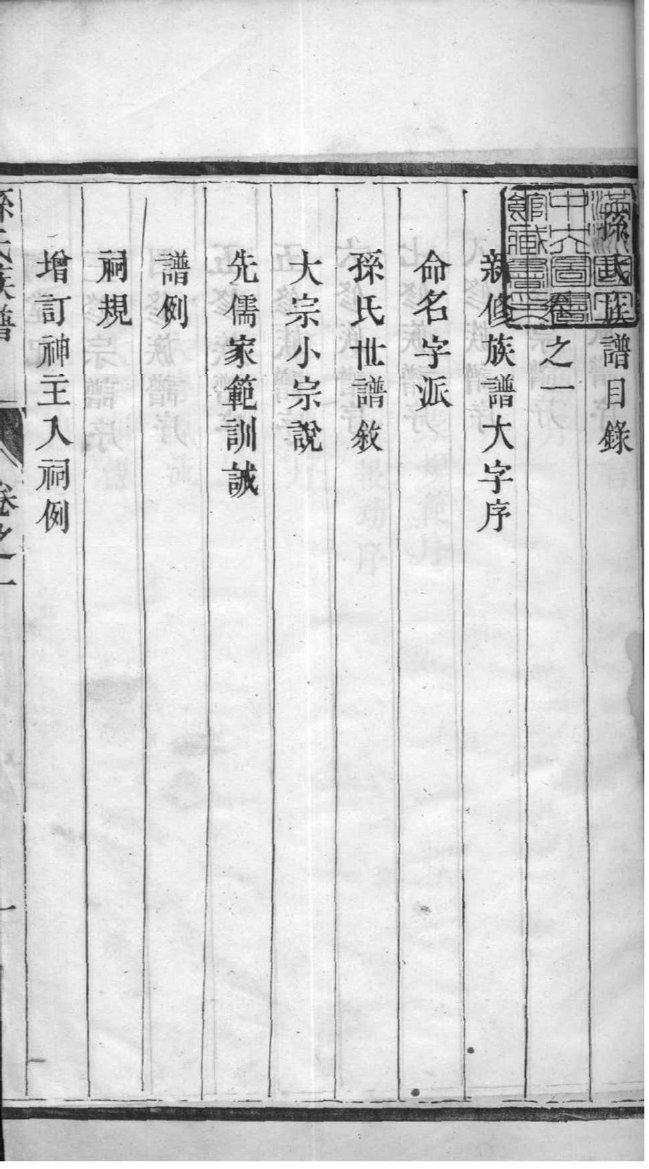 孫氏族譜目錄
卷之一
新修族譜大字序
命名字派
孫氏世譜敘
大宗小宗說
先儒家範訓誡
譜例
祠規
增訂神主入祠例
孫氏族譜
卷之一
一